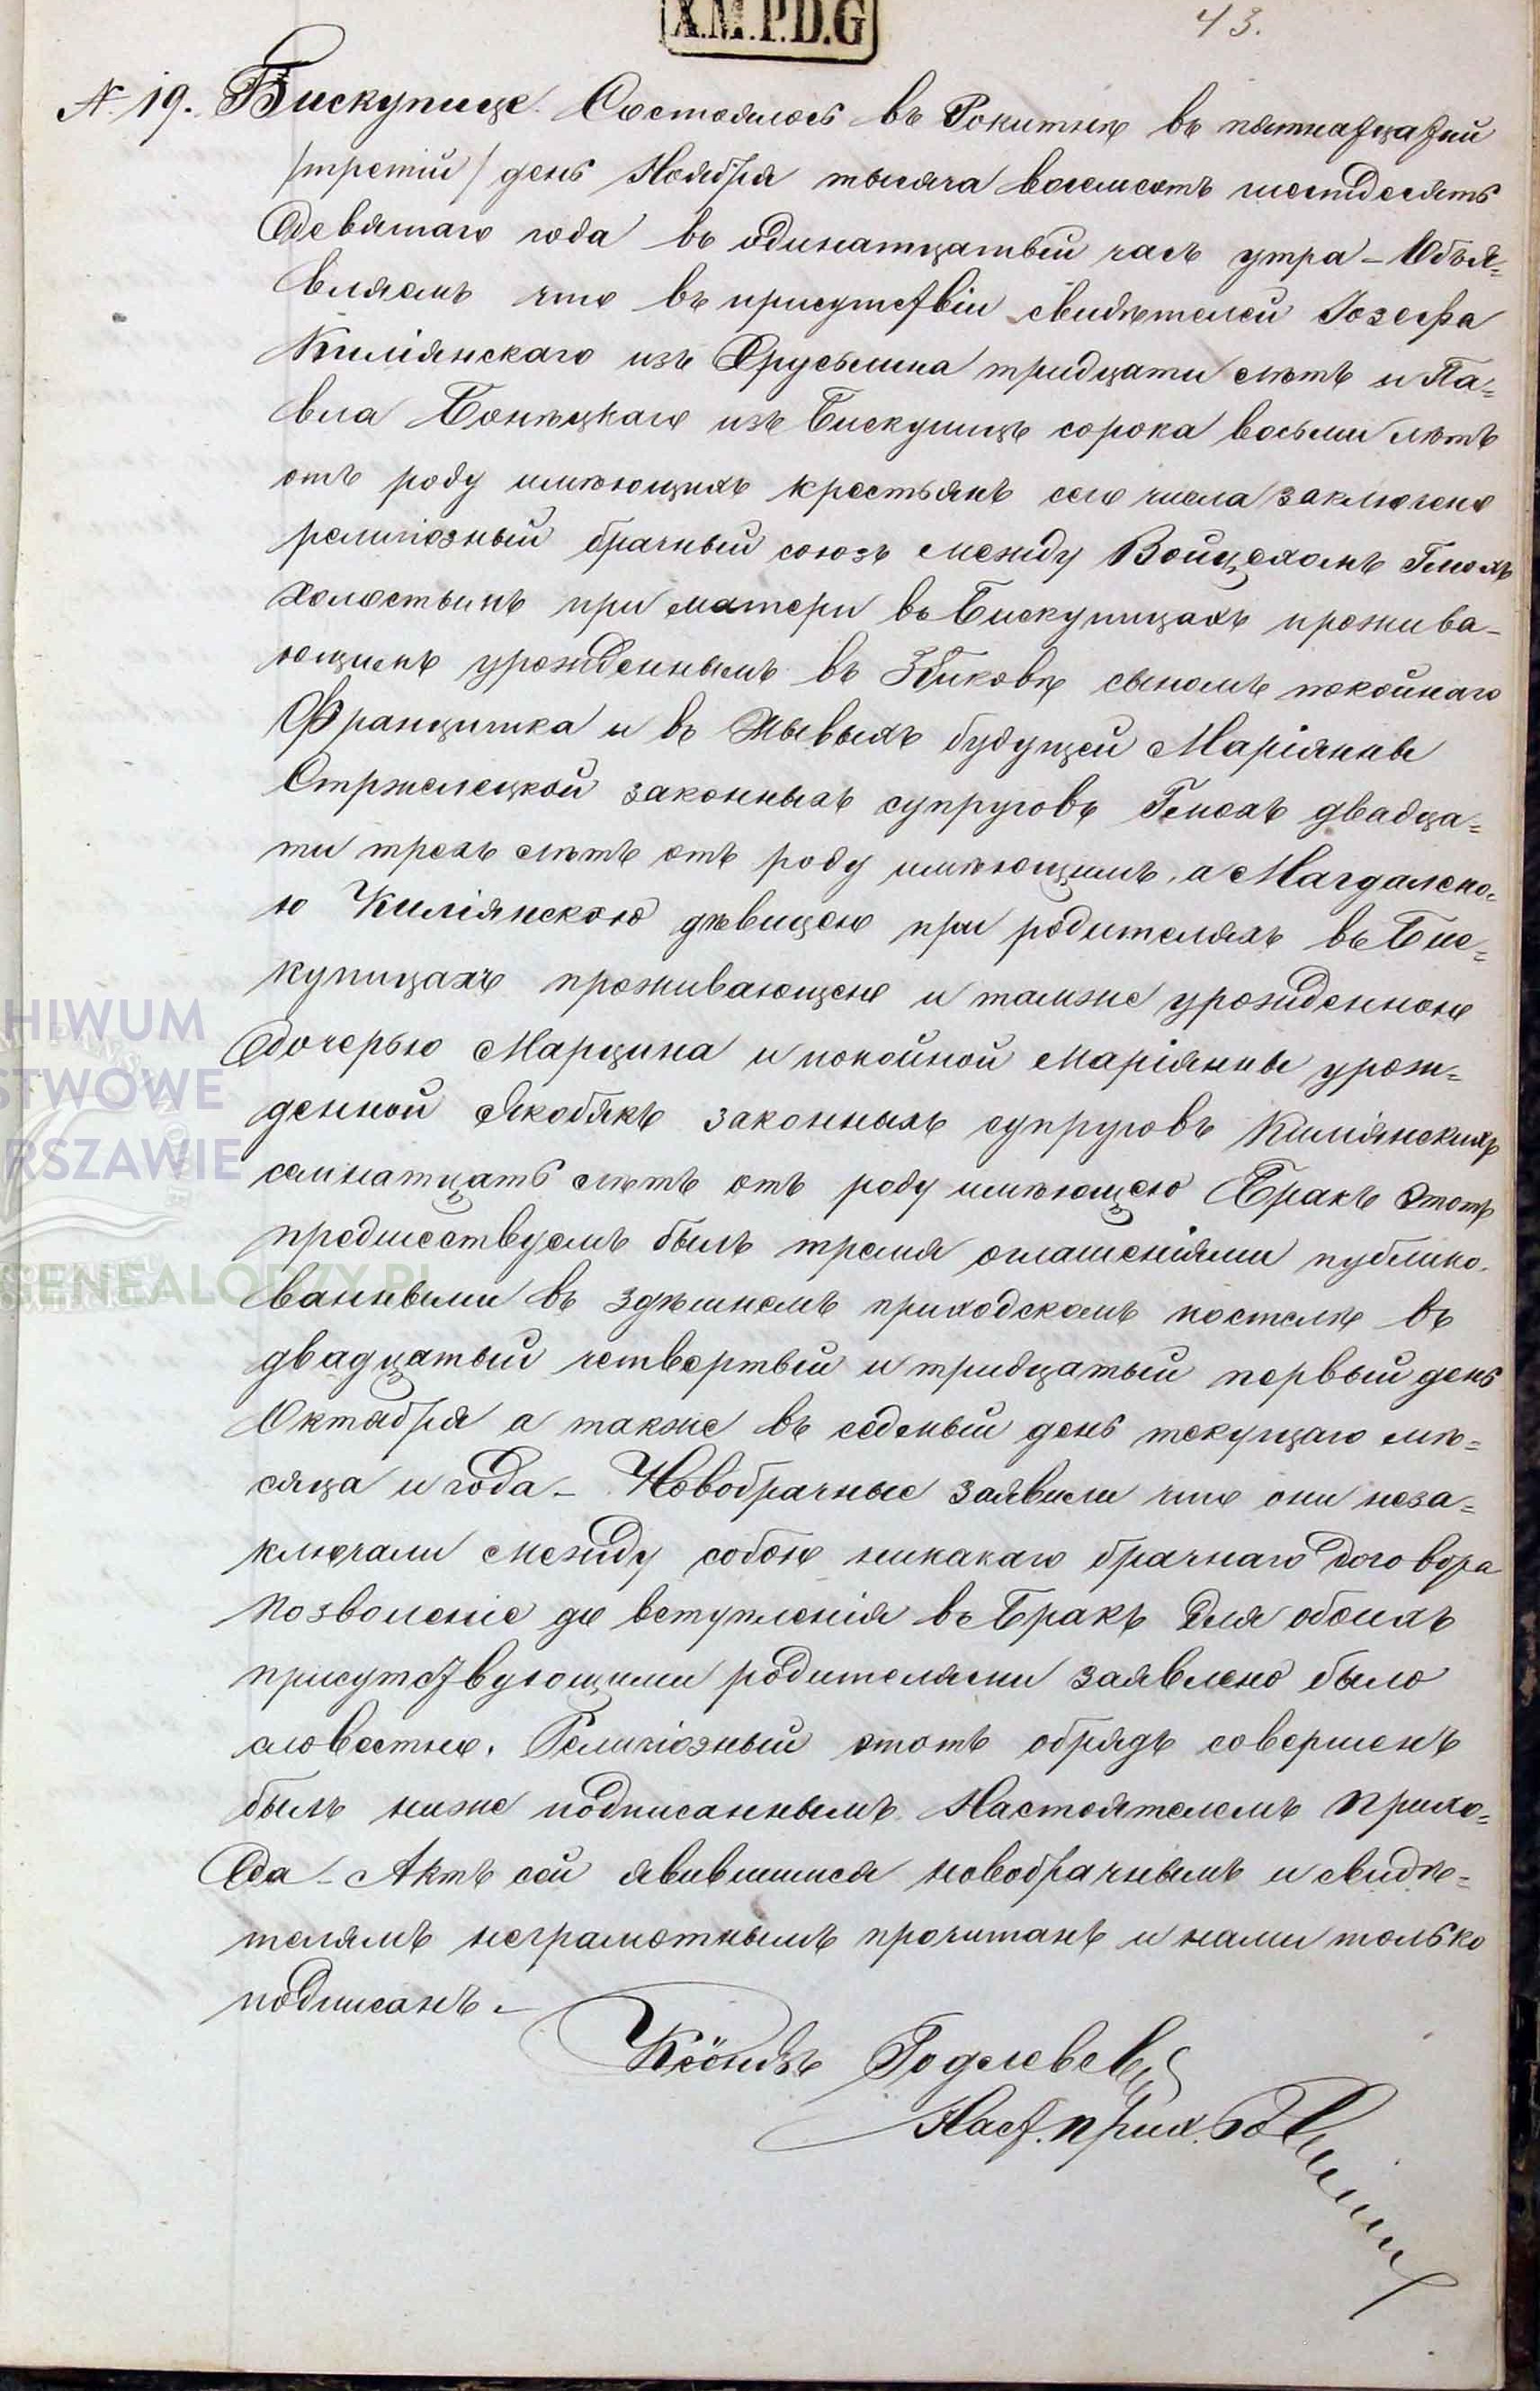 X.M.P.D.G
43.
N. 19. Бискупице. Состоялось въ Рокитнѣ въ пятнадцатый
/третій/ день Ноября тысяча восемсотъ шестдесятъ
девятаго года въ одинатцатый часъ утра – Объя=
вляемъ что въ присутствіи свидѣтелей Іозефа
Киліянскаго изъ тридцати лѣтъ и Па=
вла Бонецкаго изъ Бискупицъ сорока восьми лѣтъ
отъ роду имѣющихъ крестьянъ сего числа заключено
религіозный брачный союзъ между Войцехомъ Гмохъ
холостымъ при матери въ Бискупицахъ прожива-
ющимъ урожденнымъ въ сыномъ покойнаго
Францишка и въ Жывыхъ будущей Маріянны
Стржелецкой законныхъ супруговъ Гмохъ двадца=
ти трехъ лѣтъ отъ роду имѣющимъ, а Магдалено=
ю Киліянскою дѣвицею при родителяхъ въ Бис=
купицахъ проживающею и тамже урожденною
дочерью Марцина и покойной Маріянны урож=
денной Якобякъ законныхъ супруговъ Киліянскихъ
семнатцать лѣтъ отъ роду имѣющею Бракъ этотъ
предшествуемъ былъ тремя оглашеніями публико=
ванными въ здѣшнемъ приходскомъ костелѣ въ
двадцатый четвертый и тридцатый первый день
Октября а также въ седмый день текущаго мѣ=
сяца и года – Новобрачные заявили что они неза=
ключали между собою никакаго брачнаго договора
Позволеніе до вступленія въ Бракъ для обоихъ
присутствующими родителями заявлено было
словестно. Религіозный этотъ обрядъ совершенъ
былъ ниже подписаннымъ Настоятелемъ Прихо=
да – Актъ сей явившимся новобрачнымъ и свидѣ=
телямъ неграмотнымъ прочитанъ и нами только
подписанъ. –
Ксёндзъ
Наст. прих.
HIWUM
STWOWE
RSZAWIE
GENEALODZY.PL